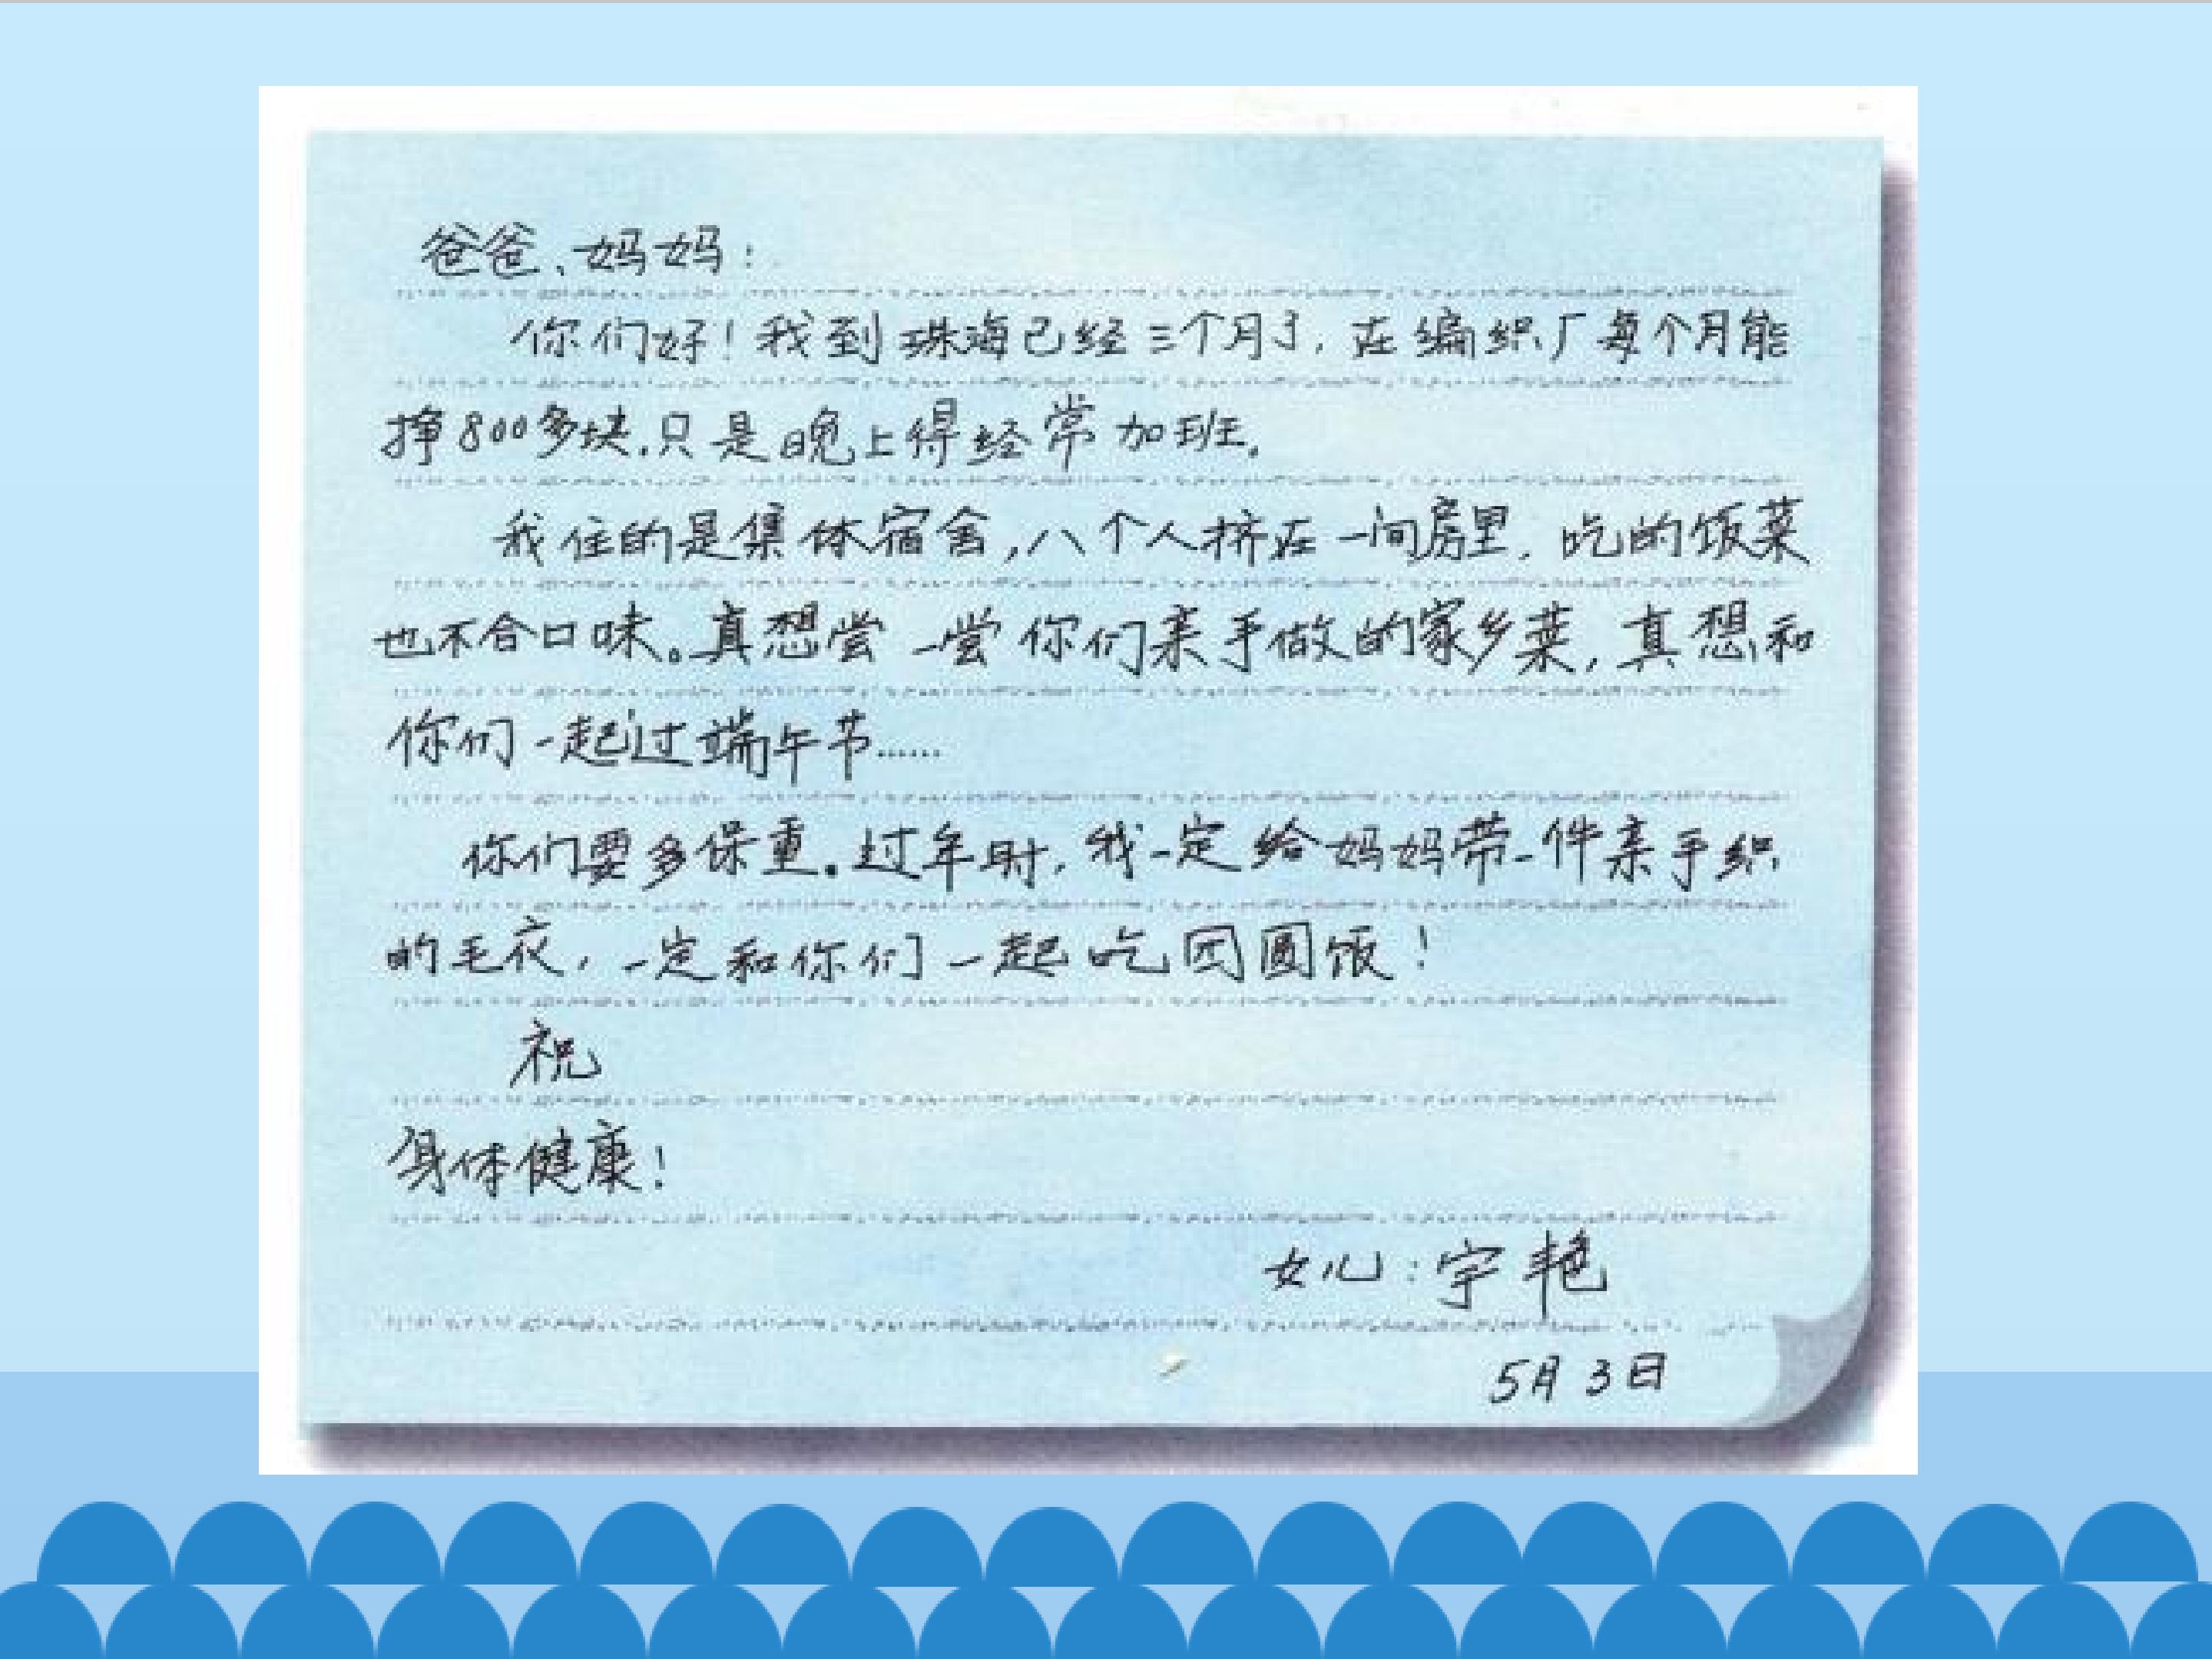 爸爸、妈妈：
你们好！我到珠海已经三个月了，在编织厂每个月能
挣800多块.只是晚上得经常加班。
我住的是集体宿舍，八个人挤在一间房里，吃的饭菜
也不合口味。真想尝一尝你们亲手做的家乡菜，真想和
你们一起过端午节……
你们要多保重。过年时，我一定给妈妈带一件亲手织
的毛衣，一定和你们一起吃团圆饭！
祝
身体健康！
女儿：宇艳
5月3日